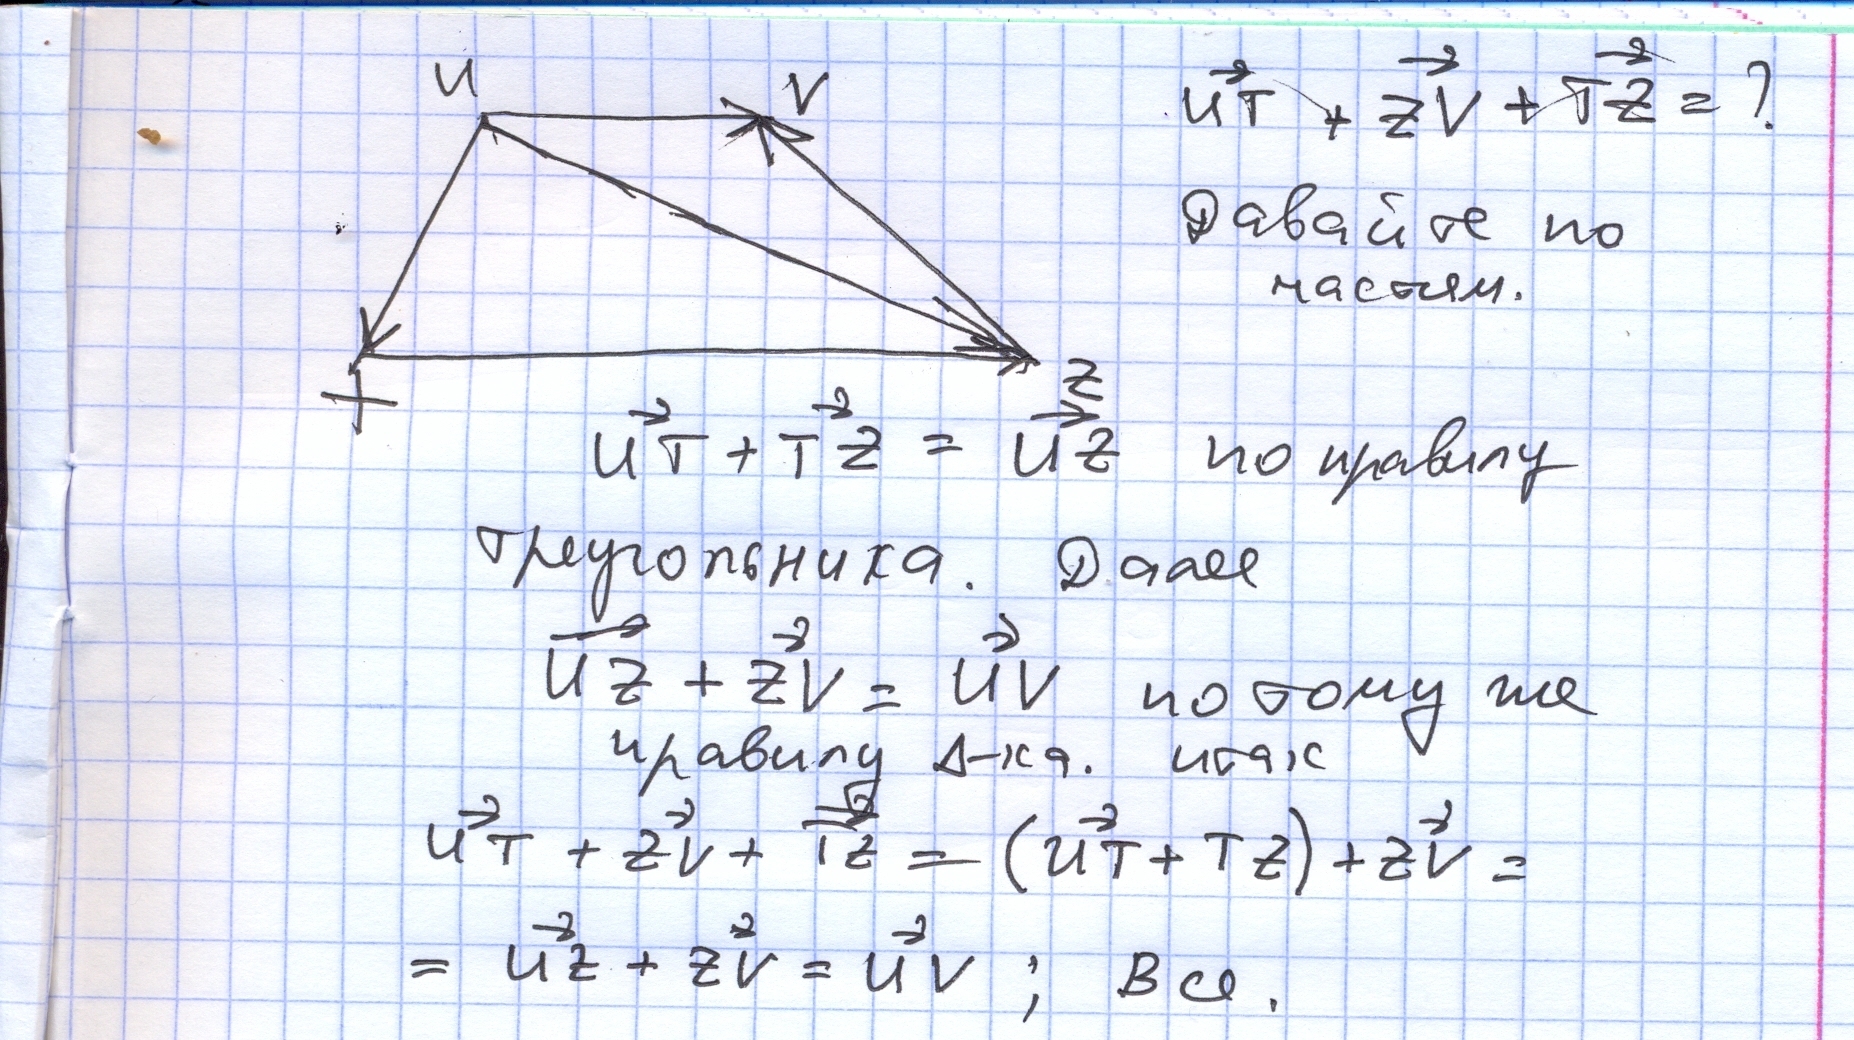 U V
UT + ZV + TZ = ?
Давайте по
частям.
T Z
UT + TZ = UZ по правилу
треугольника. Далее
UZ + ZV = UV по тому же
правилу Δ-ка. итак
UT + ZV + TZ = (UT + TZ) + ZV =
= UZ + ZV = UV ; Все.